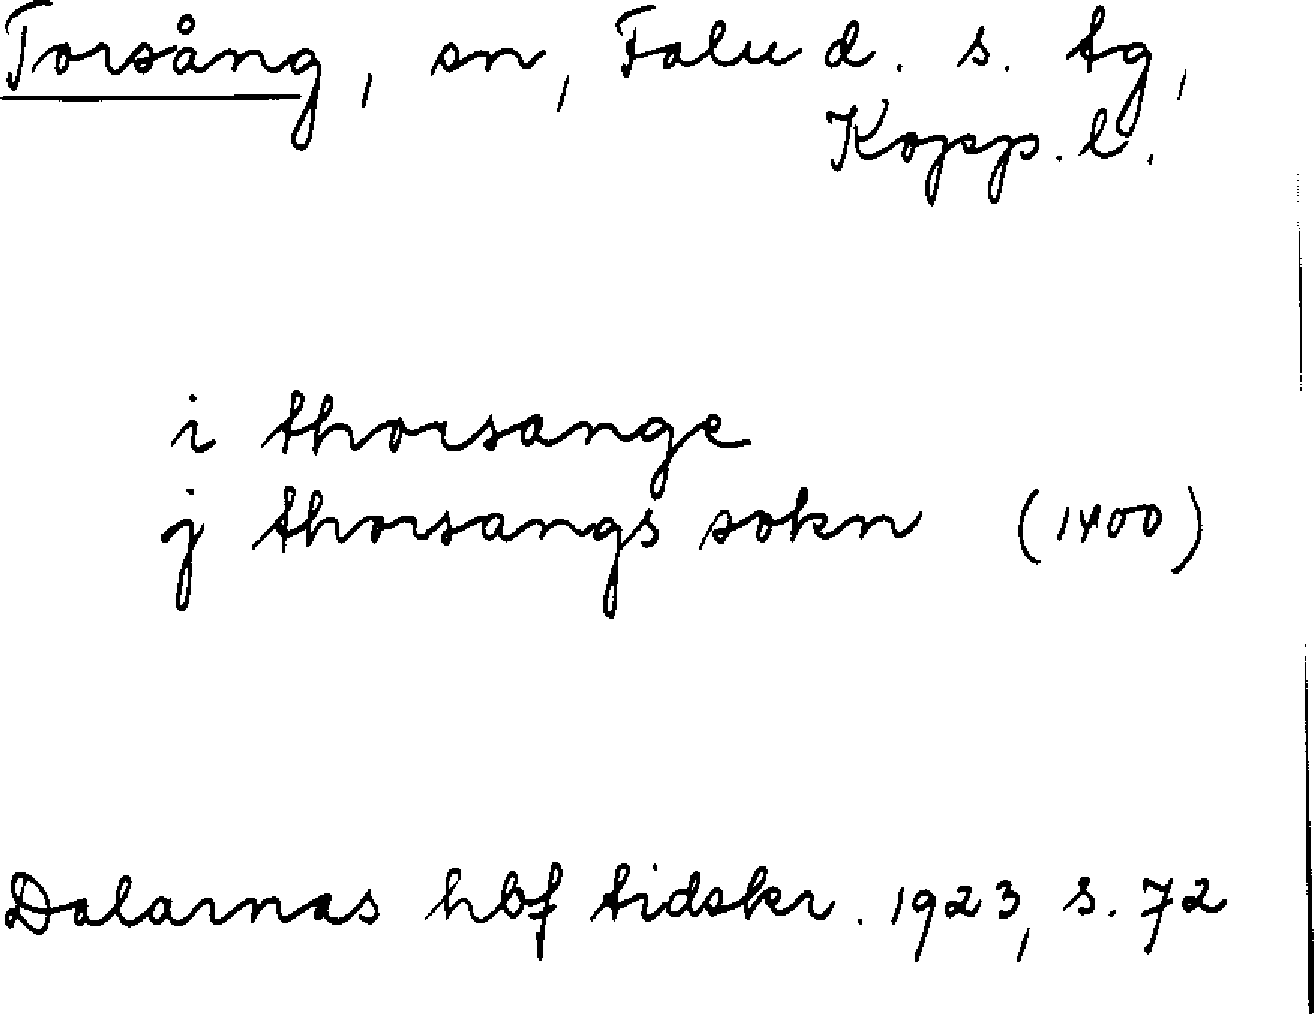 Torsång, sn, Falu d. s. tg,
Kopp. l.
i thorsange
j thorsangs sokn (1400)
Dalarnas hbf tidskr. 1923, s. 72